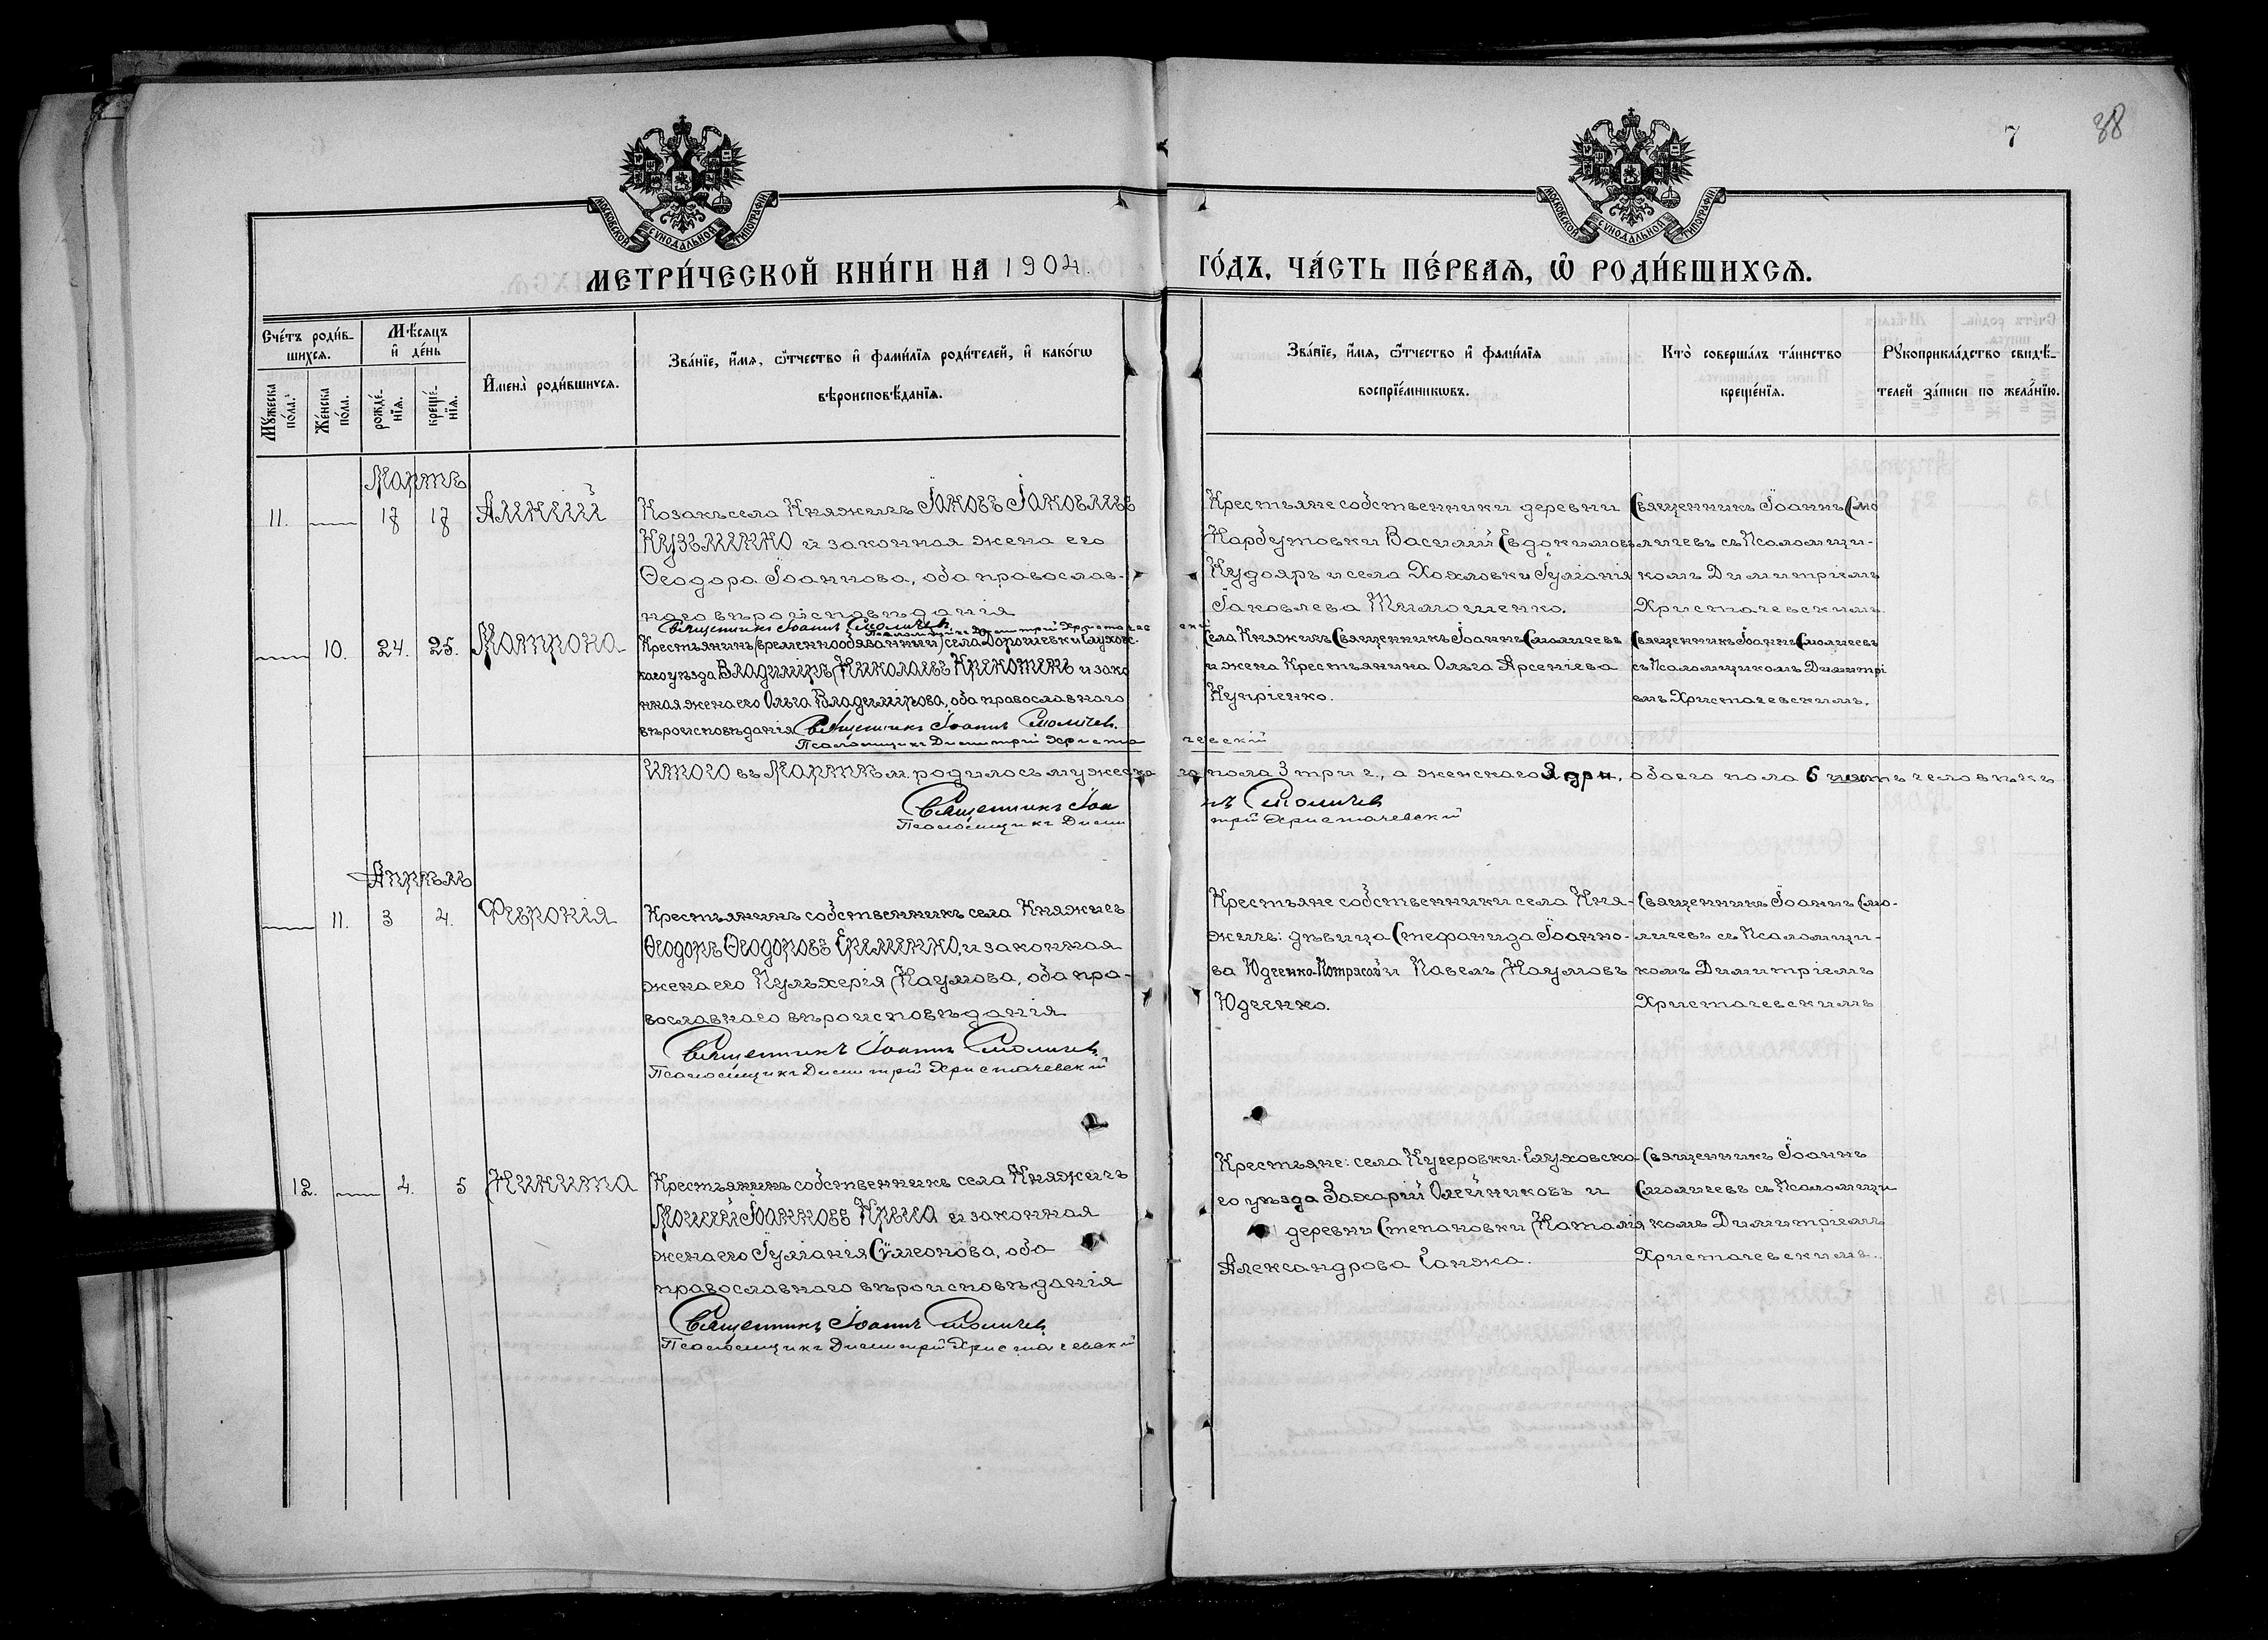 МОСКОВСКОЙ СУНОДАЛЬНОЙ ТИПОГРАФІИ
МОСКОВСКОЙ СУНОДАЛЬНОЙ ТИПОГРАФІИ
7
38
МЕТРИ́ЧЕСКОЙ КНИ́ГИ НА 1904.
ГО́ДЪ, ЧА́СТЬ ПЕ́РВАѦ, Ѡ РОДИ́ВШИХСѦ.
Сче́тъ роди́в-
шихсѧ.
Мѣ́сяцъ
и҆ де́нь
Му́жеска
по́ла.
Же́нска
по́ла.
рожде́-
нїѧ.
креще́-
нїѧ.
И҆мена̀ роди́вшихсѧ.
Зва́нїе, и҆́мѧ, ѻ҆́тчество и҆ фами́лїѧ роди́телей, и҆ како́гѡ
вѣроисповѣ́данїѧ.
Зва́нїе, и҆́мѧ, ѻ҆́тчество и҆ фами́лїѧ
воспрїе́мникѡвъ.
Кто̀ соверша́лъ та́инство
креще́нїѧ.
Рꙋкоприкла́дство свидѣ́-
телей за́писи по жела́нїю.
Мартъ
11. 17 17 Алексій
Козакъ села Княжичъ Іаковъ Іаковлевъ
Кузьменко и законная жена его
Ѳеодора Іоаннова, оба православ-
наго вѣроисповѣданія
Священникъ Іоаннъ Смоличев
Псаломщикъ Димитрій Христачевскій
Крестьяне собственники деревни
Нарбутовки Василій Евдокимовъ
Кудояръ и села Хохловки Іуліанія
Іаковлева Тимошенко.
Священникъ Іоаннъ Смо
личевъ съ Псаломщи-
комъ Димитріемъ
Христачевскимъ
10. 24. 25. Матрона
Крестьянинъ (временнообязанный) села Дорошевки Глуховс.
каго уѣзда Владиміръ Николаевъ Крикотинъ и зако
нная жена его Ольга Владимірова, оба православнаго
вѣроисповѣданія Священникъ Іоаннъ Смоличев.
Псаломщикъ Димитрій Христачевскій
Села Княжичъ Священникъ Іоаннъ Смоличевъ
и жена Крестьянина Ольга Арсеніева
Купріенко.
Священникъ Іоаннъ Смоличевъ
съ Псаломщикомъ Димитрі
емъ Христачевскимъ.
Итого въ Мартѣ м. родилось мужеска
го пола 3 три ч., а женскаго , обоего пола 6 человѣкъ
Священникъ Іоаннъ Смоличев
Псаломщикъ Димитрій Христачевскій
Апрѣль
11. 3 4. Февронія
Крестьянинъ собственникъ села Княжичъ
Ѳеодоръ Ѳеодоровъ Еременко, и законная
жена его Пульхерія Наумова, оба пра-
вославнаго вѣроисповѣданія
Священникъ Іоаннъ Смоличев.
Псаломщикъ Димитрій Христачевскій
Крестьяне собственники села Кня-
жичъ: дѣвица Стефанида Іоанно-
ва Юдченко-Потрясай и Павелъ Наумовъ
Юдченко.
Священникъ Іоаннъ Смо-
личевъ съ Псаломщи-
комъ Димитріемъ
Христачевскимъ
12. 4. 5 Никита
Крестьянинъ собственникъ села Княжичъ
Моисей Іоанновъ Крыса и законная
жена его Іуліанія Сѵмеонова, оба
православнаго вѣроисповѣданія
Священникъ Іоаннъ Смоличев.
Псаломщикъ Димитрій Христачевскій
Крестьяне: села Кучеровки Глуховска
го уѣзда Захарій Олейниковъ и
деревни Степановки Наталія
Александрова Ганжа.
Священникъ Іоаннъ
Смоличевъ съ Псаломщи
комъ Димитріемъ
Христачевскимъ.